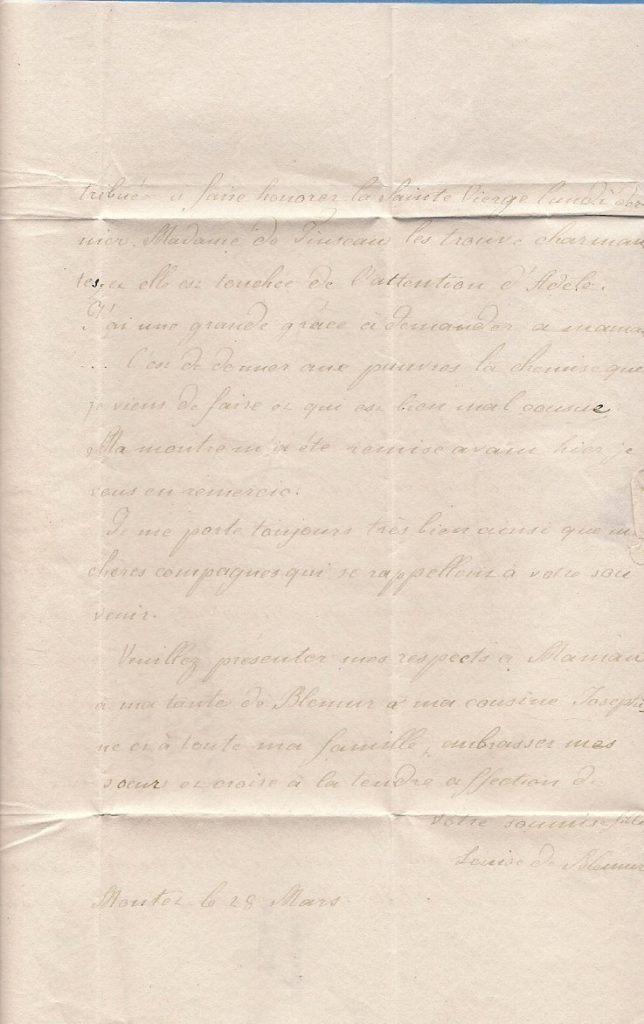 tribuée à faire honorer la Sainte Vierge lundi der
nier. Madame de Pinseau les trouve charman
tes, et elle est touchée de l'attention d'Adele.
J'ai une grande grâce à demander, a maman
... C'est de donner aux pauvres la chemise que
je viens de faire et qui est bien mal cousue,
Ma montre m'a été remise avant hier, je
vous en remercie.
Je me porte toujours très bien ainsi que m
chères compagnes qui se rappellent à votre sou
venir.
Veuillez présenter mes respects à Maman
à ma tante de Blemur à ma cousine Josephi
ne et à toute ma famille, embrasser mes
soeurs et croire à la tendre affection de
votre soumise fille
Louise de Blemur
le 28 Mars